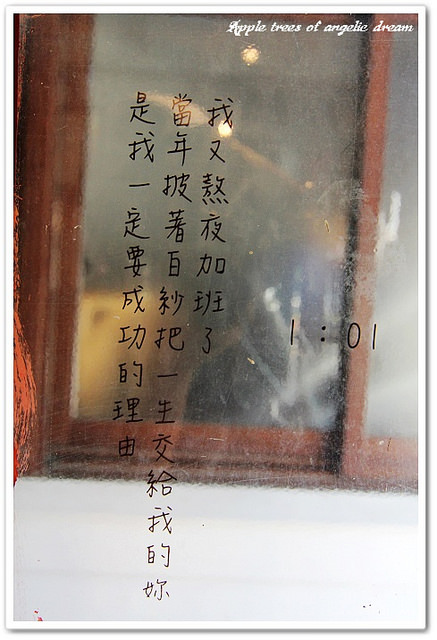 Apple trees of angelic dream
1:01
我又熬夜加班了
當年披著白紗把一生交給我的妳
是我一定要成功的理由